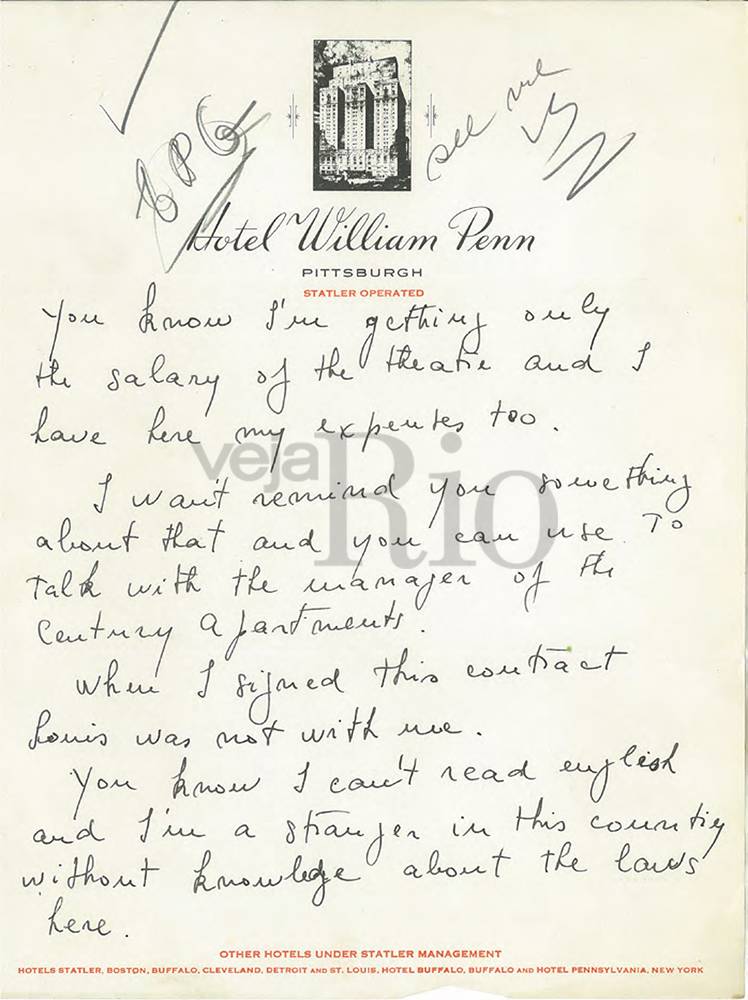 see me
Hotel William Penn
PITTSBURGH
STATLER OPERATED
You know I'm getting only
the salary of the theatre and I
have here my expenses too.
vejaRio
I wan't remind you something
about that and you can use to
talk with the manager of the
Century Apartments.
When I signed this contract
Louis was not with me.
You know I can't read english
and I'm a stranger in this country
without knowledge about the laws
here.
OTHER HOTELS UNDER STATLER MANAGEMENT
HOTELS STATLER, BOSTON, BUFFALO, CLEVELAND, DETROIT AND ST. LOUIS, HOTEL BUFFALO, BUFFALO AND HOTEL PENNSYLVANIA, NEW YORK